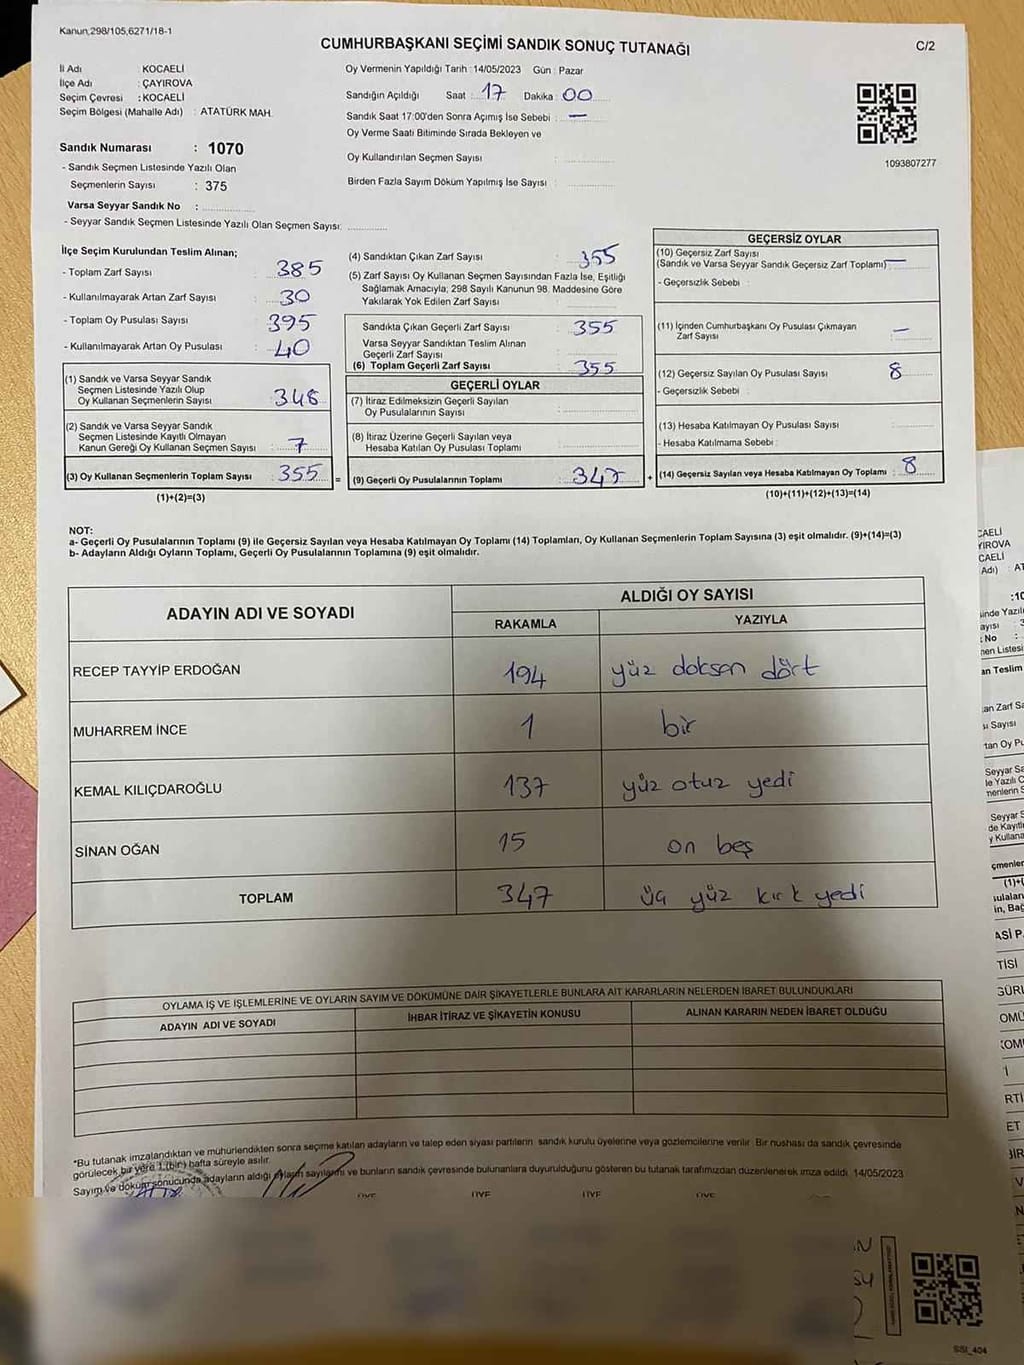 Kanun,298/105,6271/18-1
CUMHURBAŞKANI SEÇİMİ SANDIK SONUÇ TUTANAĞI
C/2
İl Adı : KOCAELİ
İlçe Adı : ÇAYIROVA
Seçim Çevresi : KOCAELİ
Seçim Bölgesi (Mahalle Adı) : ATATÜRK MAH.
Sandık Numarası : 1070
- Sandık Seçmen Listesinde Yazılı Olan
Seçmenlerin Sayısı : 375
Varsa Seyyar Sandık No :
- Seyyar Sandık Seçmen Listesinde Yazılı Olan Seçmen Sayısı:
Oy Vermenin Yapıldığı Tarih : 14/05/2023 Gün : Pazar
Sandığın Açıldığı Saat : 17 Dakika : 00
Sandık Saat 17:00'den Sonra Açımış İse Sebebi : —
Oy Verme Saati Bitiminde Sırada Bekleyen ve
Oy Kullandırılan Seçmen Sayısı :
Birden Fazla Sayım Döküm Yapılmış İse Sayısı :
1093807277
İlçe Seçim Kurulundan Teslim Alınan;
- Toplam Zarf Sayısı : 385
- Kullanılmayarak Artan Zarf Sayısı : 30
- Toplam Oy Pusulası Sayısı : 395
- Kullanılmayarak Artan Oy Pusulası : 40
(1) Sandık ve Varsa Seyyar Sandık
Seçmen Listesinde Yazılı Olup
Oy Kullanan Seçmenlerin Sayısı : 348
(2) Sandık ve Varsa Seyyar Sandık
Seçmen Listesinde Kayıtlı Olmayan
Kanun Gereği Oy Kullanan Seçmen Sayısı : 7
(3) Oy Kullanan Seçmenlerin Toplam Sayısı : 355 =
(1)+(2)=(3)
(4) Sandıktan Çıkan Zarf Sayısı : 355
(5) Zarf Sayısı Oy Kullanan Seçmen Sayısından Fazla İse, Eşitliği
Sağlamak Amacıyla; 298 Sayılı Kanunun 98. Maddesine Göre
Yakılarak Yok Edilen Zarf Sayısı :
Sandıkta Çıkan Geçerli Zarf Sayısı : 355
Varsa Seyyar Sandıktan Teslim Alınan
Geçerli Zarf Sayısı :
(6) Toplam Geçerli Zarf Sayısı : 355
GEÇERLİ OYLAR
(7) İtiraz Edilmeksizin Geçerli Sayılan
Oy Pusulalarının Sayısı :
(8) İtiraz Üzerine Geçerli Sayılan veya
Hesaba Katılan Oy Pusulası Toplamı :
(9) Geçerli Oy Pusulalarının Toplamı : 347 +
GEÇERSİZ OYLAR
(10) Geçersiz Zarf Sayısı
(Sandık ve Varsa Seyyar Sandık Geçersiz Zarf Toplamı) : —
- Geçersizlik Sebebi :
(11) İçinden Cumhurbaşkanı Oy Pusulası Çıkmayan
Zarf Sayısı : —
(12) Geçersiz Sayılan Oy Pusulası Sayısı : 8
- Geçersizlik Sebebi :
(13) Hesaba Katılmayan Oy Pusulası Sayısı :
- Hesaba Katılmama Sebebi :
(14) Geçersiz Sayılan veya Hesaba Katılmayan Oy Toplamı : 8
(10)+(11)+(12)+(13)=(14)
NOT:
a- Geçerli Oy Pusulalarının Toplamı (9) ile Geçersiz Sayılan veya Hesaba Katılmayan Oy Toplamı (14) Toplamları, Oy Kullanan Seçmenlerin Toplam Sayısına (3) eşit olmalıdır. (9)+(14)=(3)
b- Adayların Aldığı Oyların Toplamı, Geçerli Oy Pusulalarının Toplamına (9) eşit olmalıdır.
ADAYIN ADI VE SOYADI
ALDIĞI OY SAYISI
RAKAMLA YAZIYLA
RECEP TAYYİP ERDOĞAN 194 yüz doksan dört
MUHARREM İNCE 1 bir
KEMAL KILIÇDAROĞLU 137 yüz otuz yedi
SİNAN OĞAN 15 on beş
TOPLAM 347 üç yüz kırk yedi
OYLAMA İŞ VE İŞLEMLERİNE VE OYLARIN SAYIM VE DÖKÜMÜNE DAİR ŞİKAYETLERLE BUNLARA AİT KARARLARIN NELERDEN İBARET BULUNDUKLARI
ADAYIN ADI VE SOYADI İHBAR İTİRAZ VE ŞİKAYETİN KONUSU ALINAN KARARIN NEDEN İBARET OLDUĞU
*Bu tutanak imzalandıktan ve mühürlendikten sonra seçime katılan adayların ve talep eden siyasi partilerin sandık kurulu üyelerine veya gözlemcilerine verilir. Bir nüshası da sandık çevresinde
görülecek bir yere 1 (bir) hafta süreyle asılır.
Sayım ve döküm sonucunda adayların aldığı oyların sayılarını ve bunların sandık çevresinde bulunanlara duyurulduğunu gösteren bu tutanak tarafımızdan düzenlenerek imza edildi. 14/05/2023
SSI_404